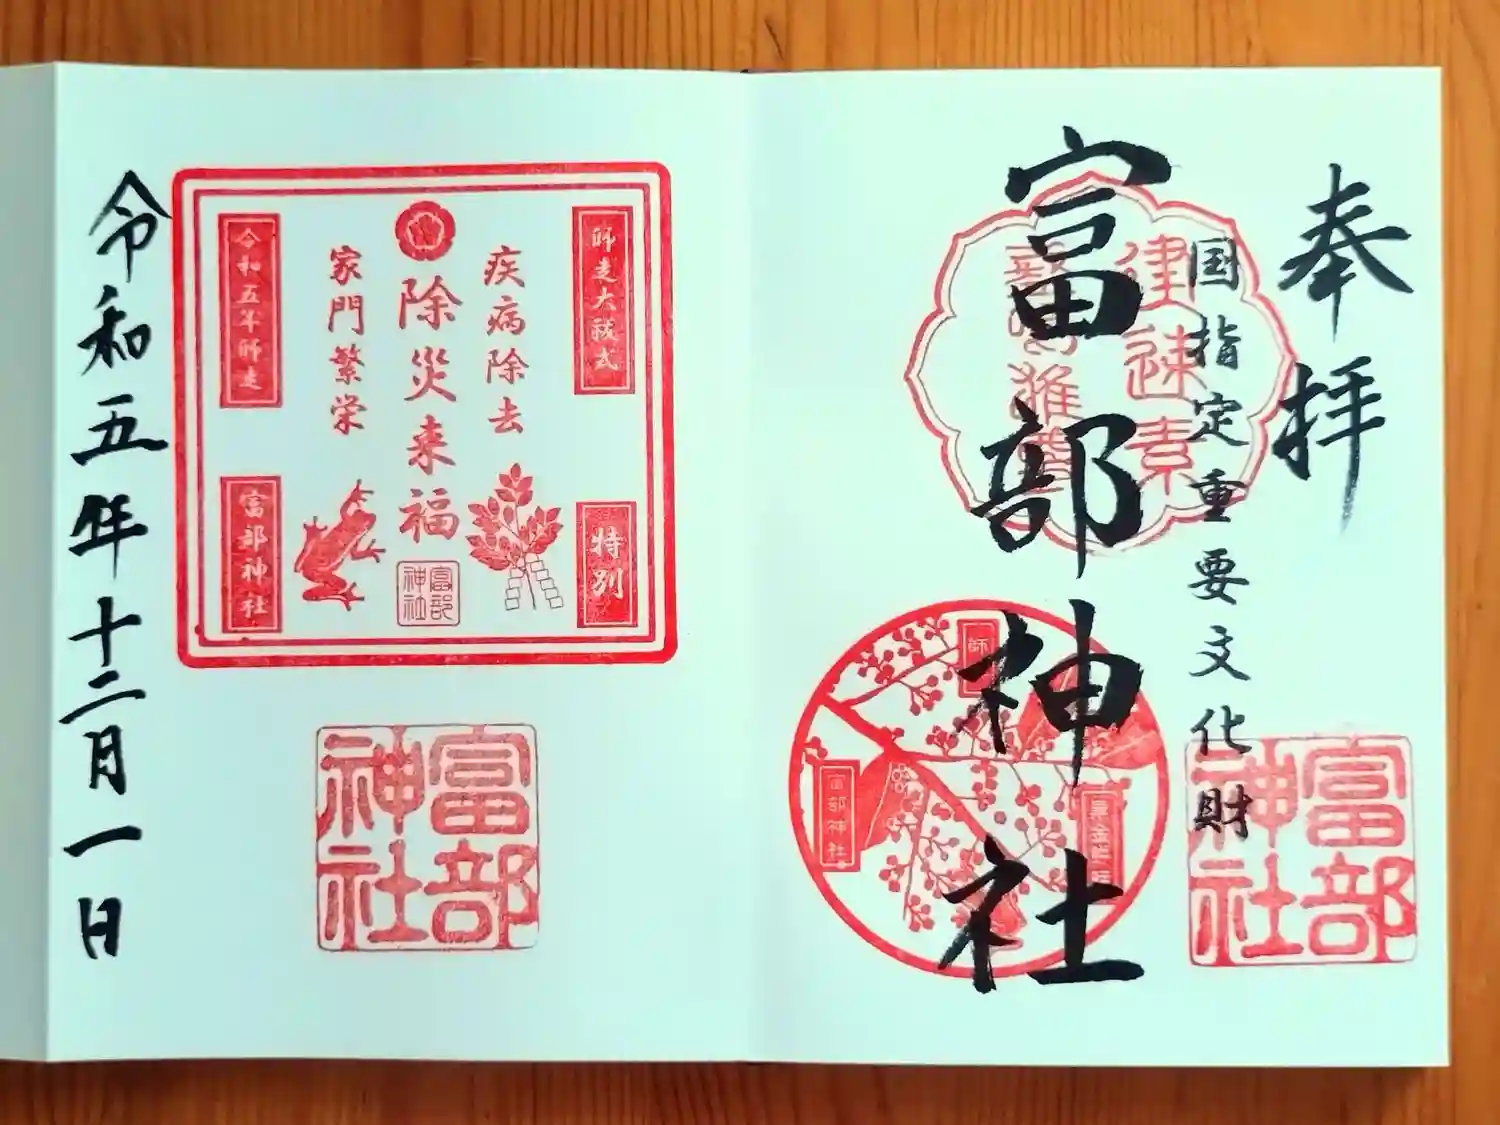 奉拝
国指定重要文化財
富部神社
建速素
富部神社
師
富部神社
師走大祓式
特別
疾病除去
除災来福
家門繁栄
富部神社
令和五年師走
富部神社
富部神社
令和五年十二月一日